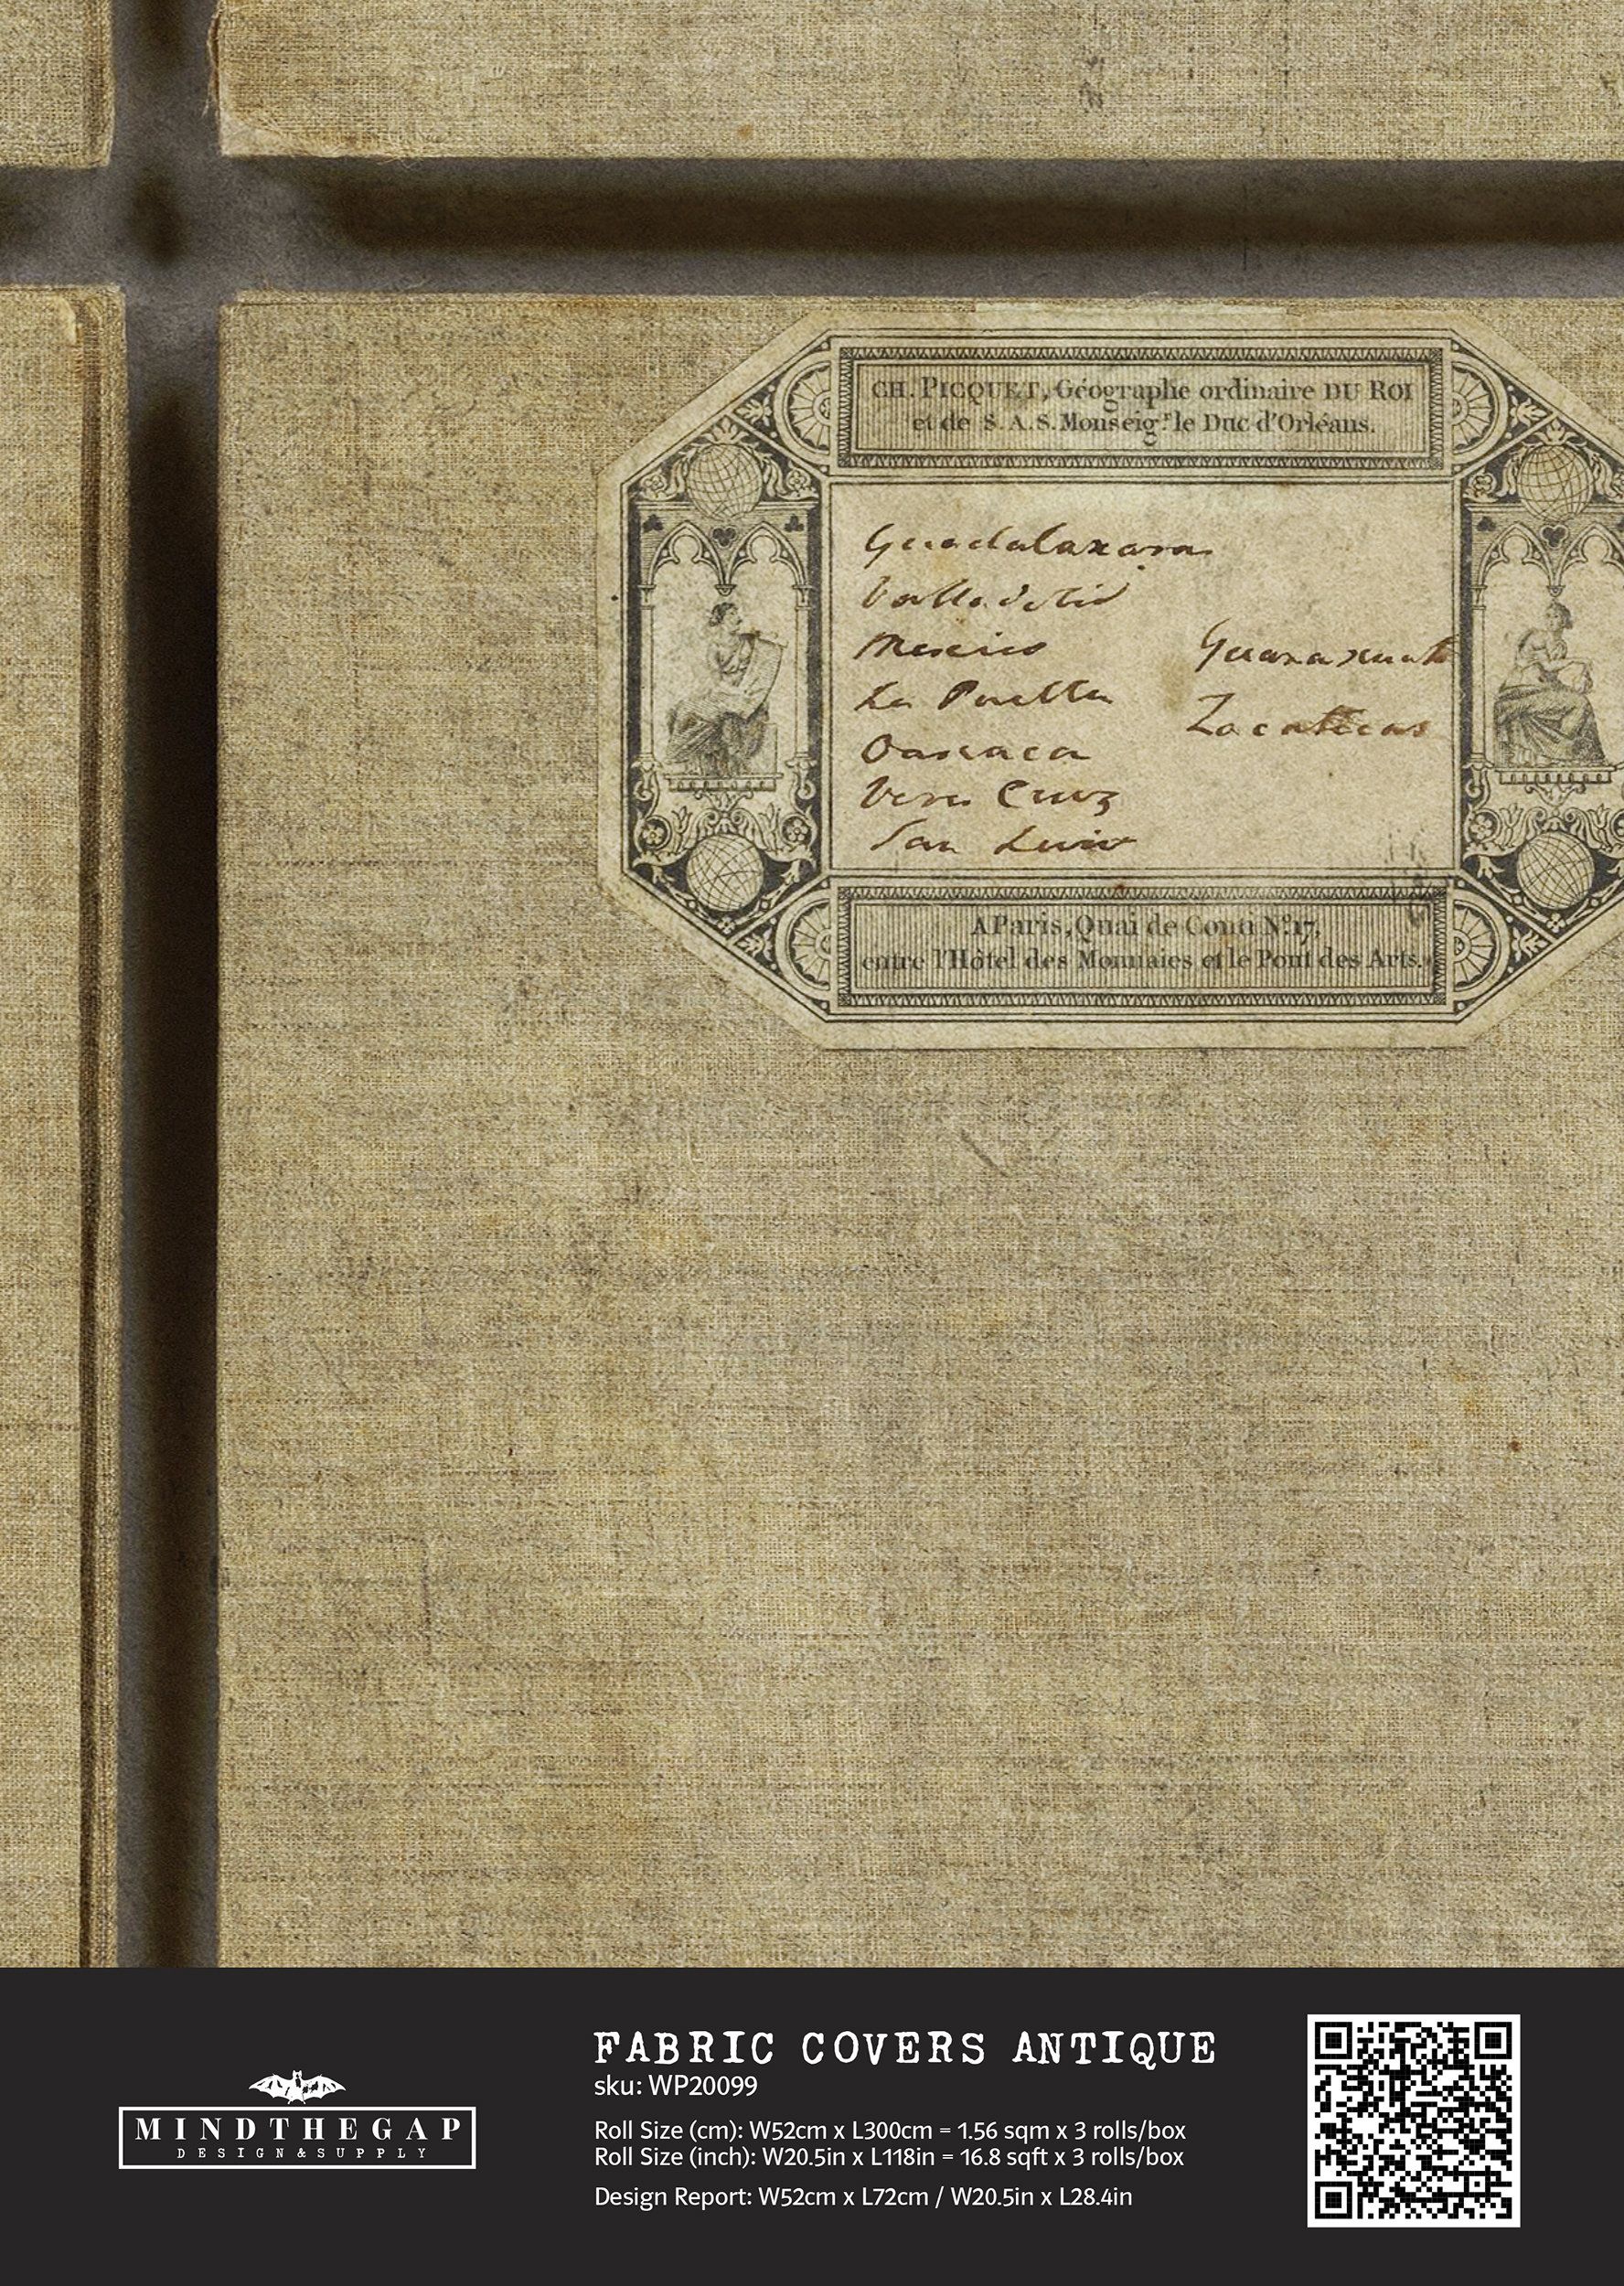 CH. PICQUET, Géographe ordinaire DU ROI
et de S. A. S. Monseig.r le Duc d'Orléans.
Guadalaxara
Valladolid
Mexico
La Puebla
Oaxaca
Vera Cruz
San Luis
Guanaxuato
Zacatecas
A Paris, Quai de Conti N.o 17,
entre l'Hôtel des Monnaies et le Pont des Arts.
FABRIC COVERS ANTIQUE
sku: WP20099
Roll Size (cm): W52cm x L300cm = 1.56 sqm x 3 rolls/box
Roll Size (inch): W20.5in x L118in = 16.8 sqft x 3 rolls/box
Design Report: W52cm x L72cm / W20.5in x L28.4in
MINDTHEGAP
DESIGN & SUPPLY